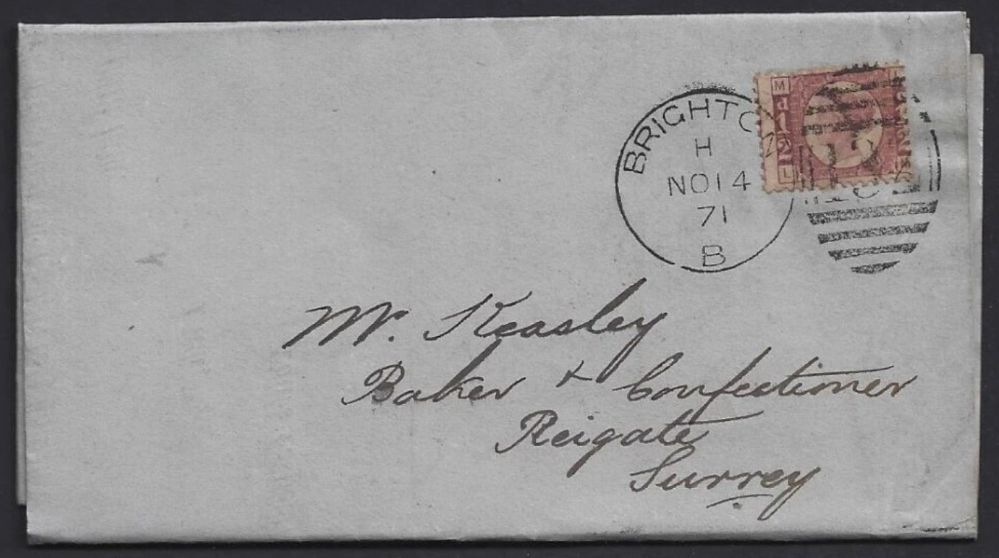 BRIGHTON
H
NO 14
71
B
M
L
Mr. Keasley
Baker & Confectioner
Reigate
Surrey